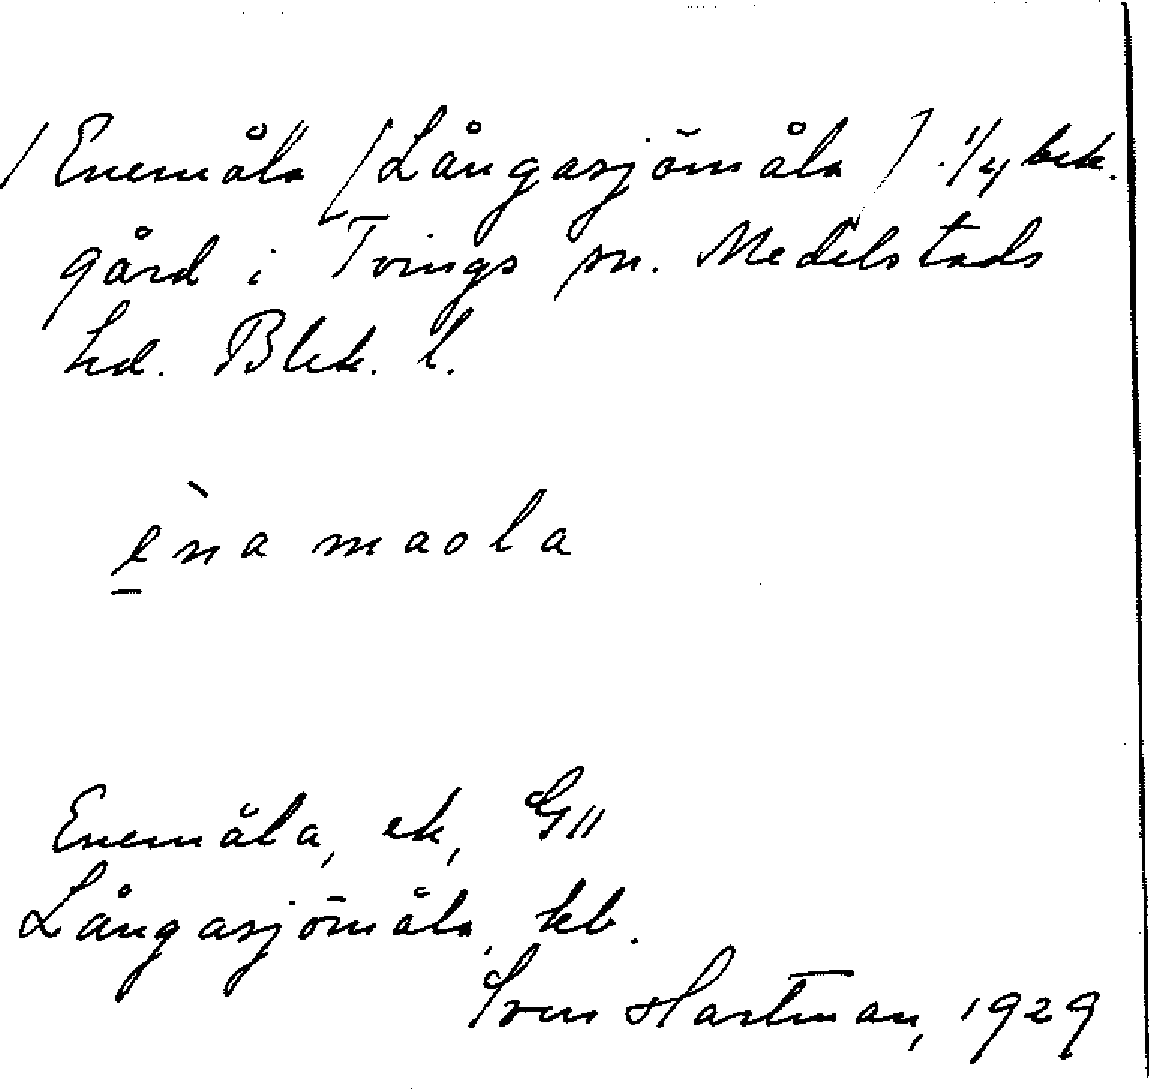 / Enemåla [Långasjömåla] 1/4 bek.
gård i Tvings sn. Medelstads
hd. Blek. l.
èna maola
Enemåla, ek, GII
Långasjömåla, kb.
Sven Hartman, 1929